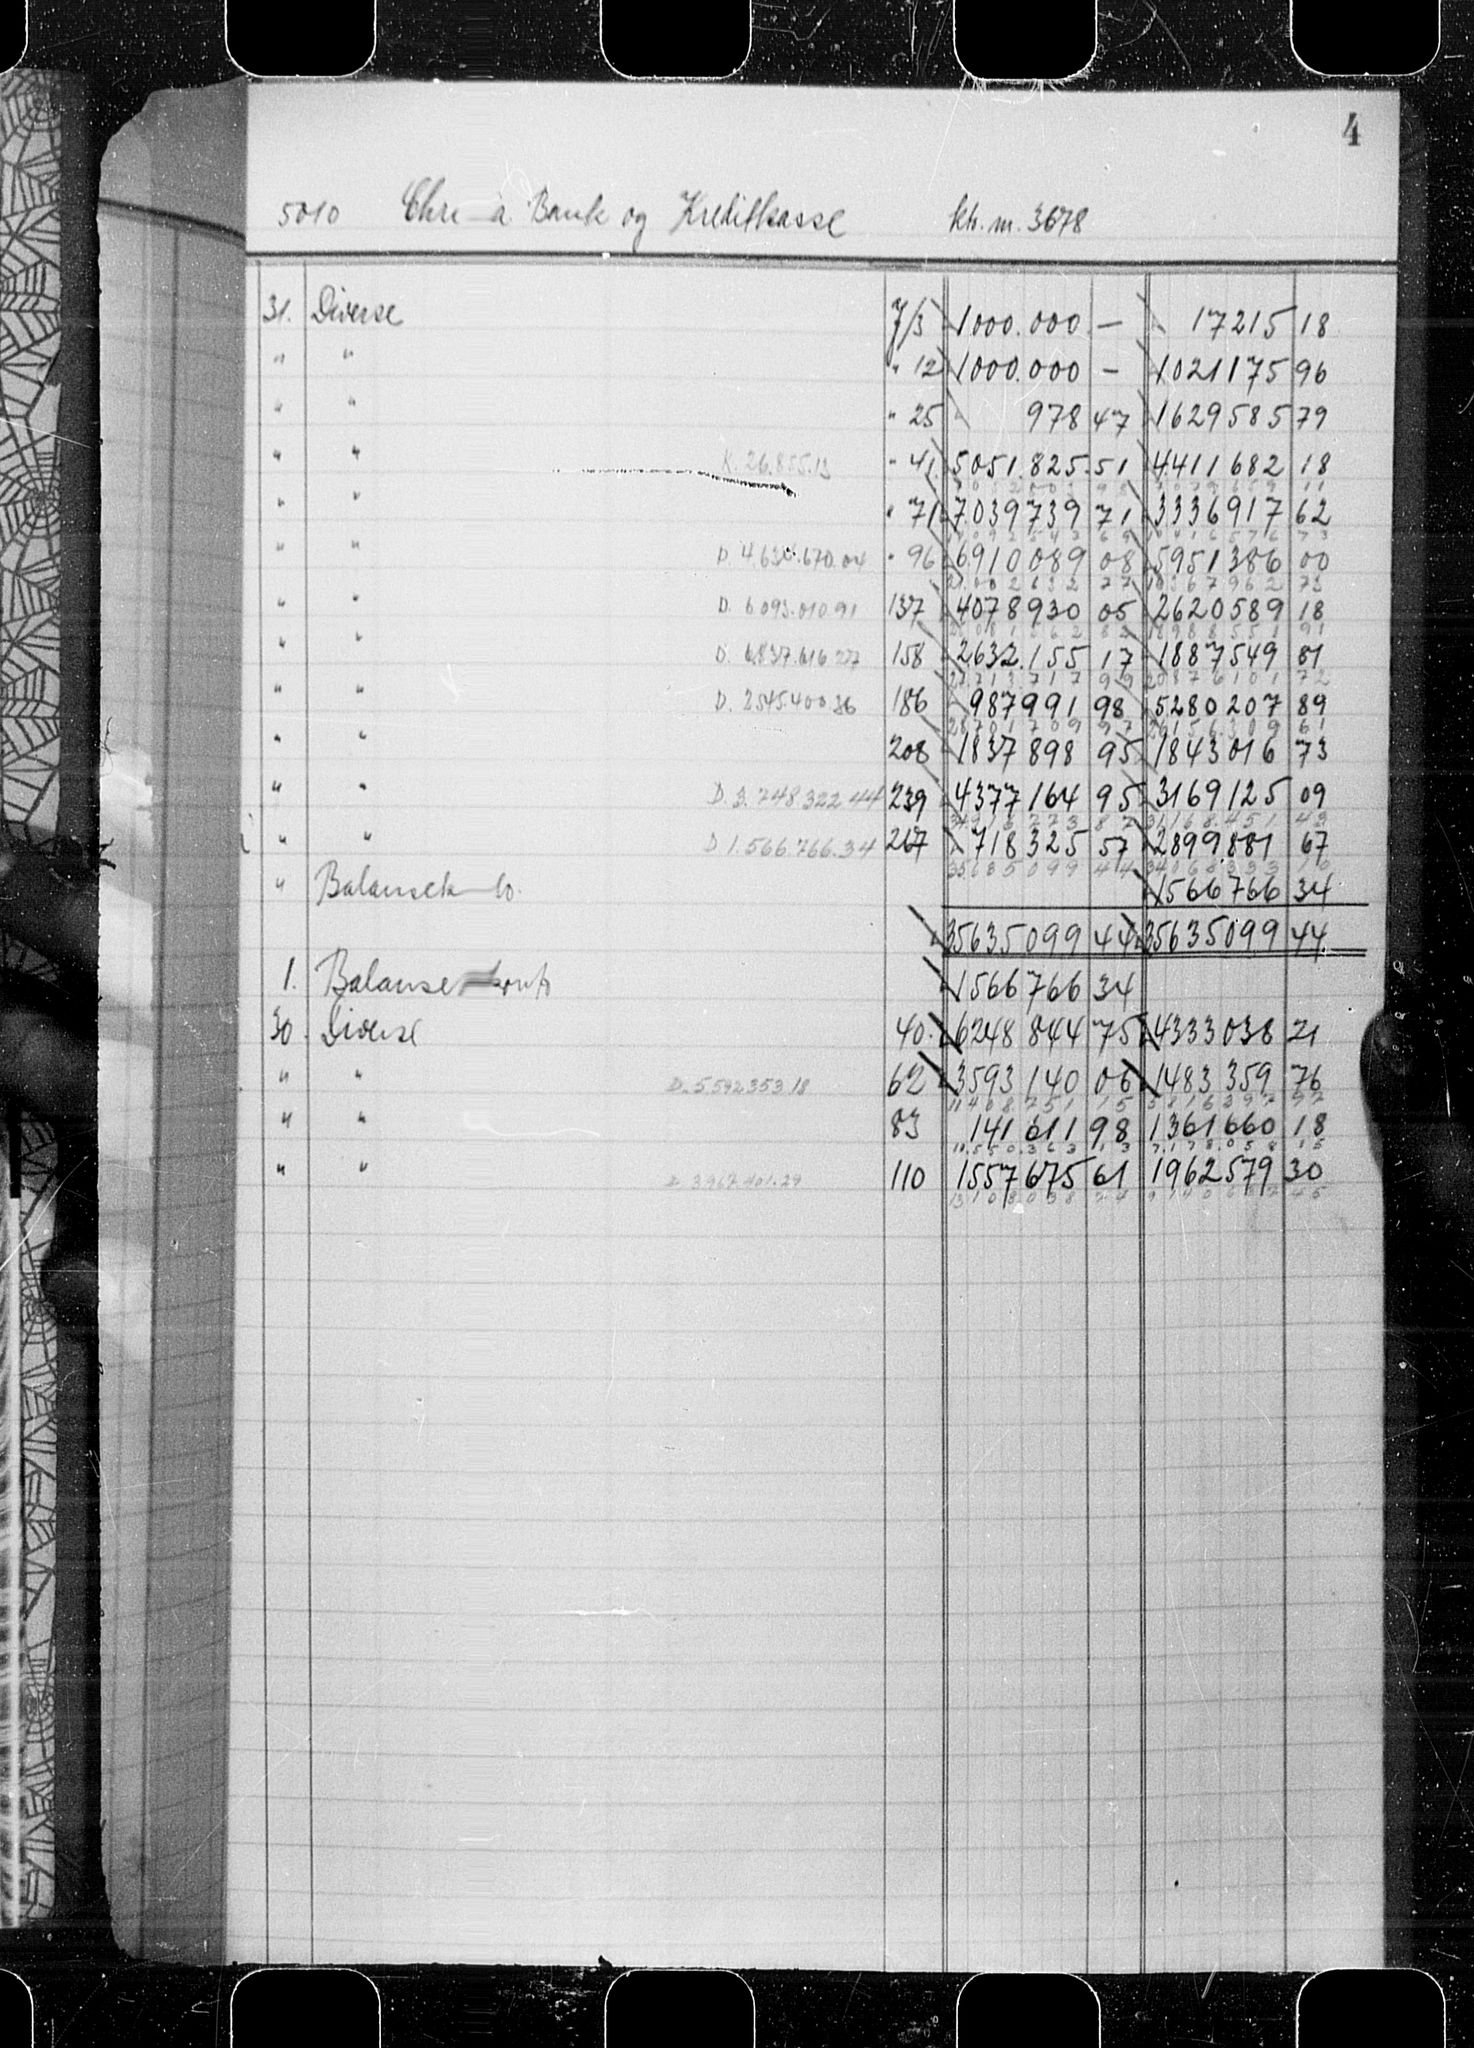 4
5010 Chra Bank og Kreditkasse ktr. nr. 3678
31. Diverse 7/3 1000.000 — 17215 18
" " " 12 1000.000 — 1021175 96
" " " 25 978 47 1629585 79
" " K. 26.855.13 " 41 5051.825.51 4411682 18
" " " 71 7039739 71 3336917 62
" " D. 4.634.670.04 " 96 6910089 08 5951386 00
" " D. 6.093.010 91 137 4078930 05 2620589 18
" " D. 6.837.616 27 158 2632.155 17 1887549 81
" " D. 2.545.400.36 186 987991 98 5280207 89
" " 208 1837898 95 1843016 73
" " D. 3.748.322 44 239 4377164 95 3169125 09
34916773 87 31168.451 43
" " D 1.566.766.34 267 718325 57 2899881 67
35635099 44 34068333 10
" Balansekto. 1566766 34
35635099 44 35635099 44
1. Balansekonto 1566766 34
30. Diverse 40. 6248844 75 4333038 21
" " D. 5592353 18 62 3593140 06 1483359 76
11408751 15 5816397 97
" " 83 141611 98 1361660 18
11.550.363 13 7.178.058 15
" " D 3967401.29 110 1557675 61 1962579 30
13108038 74 9140637 45